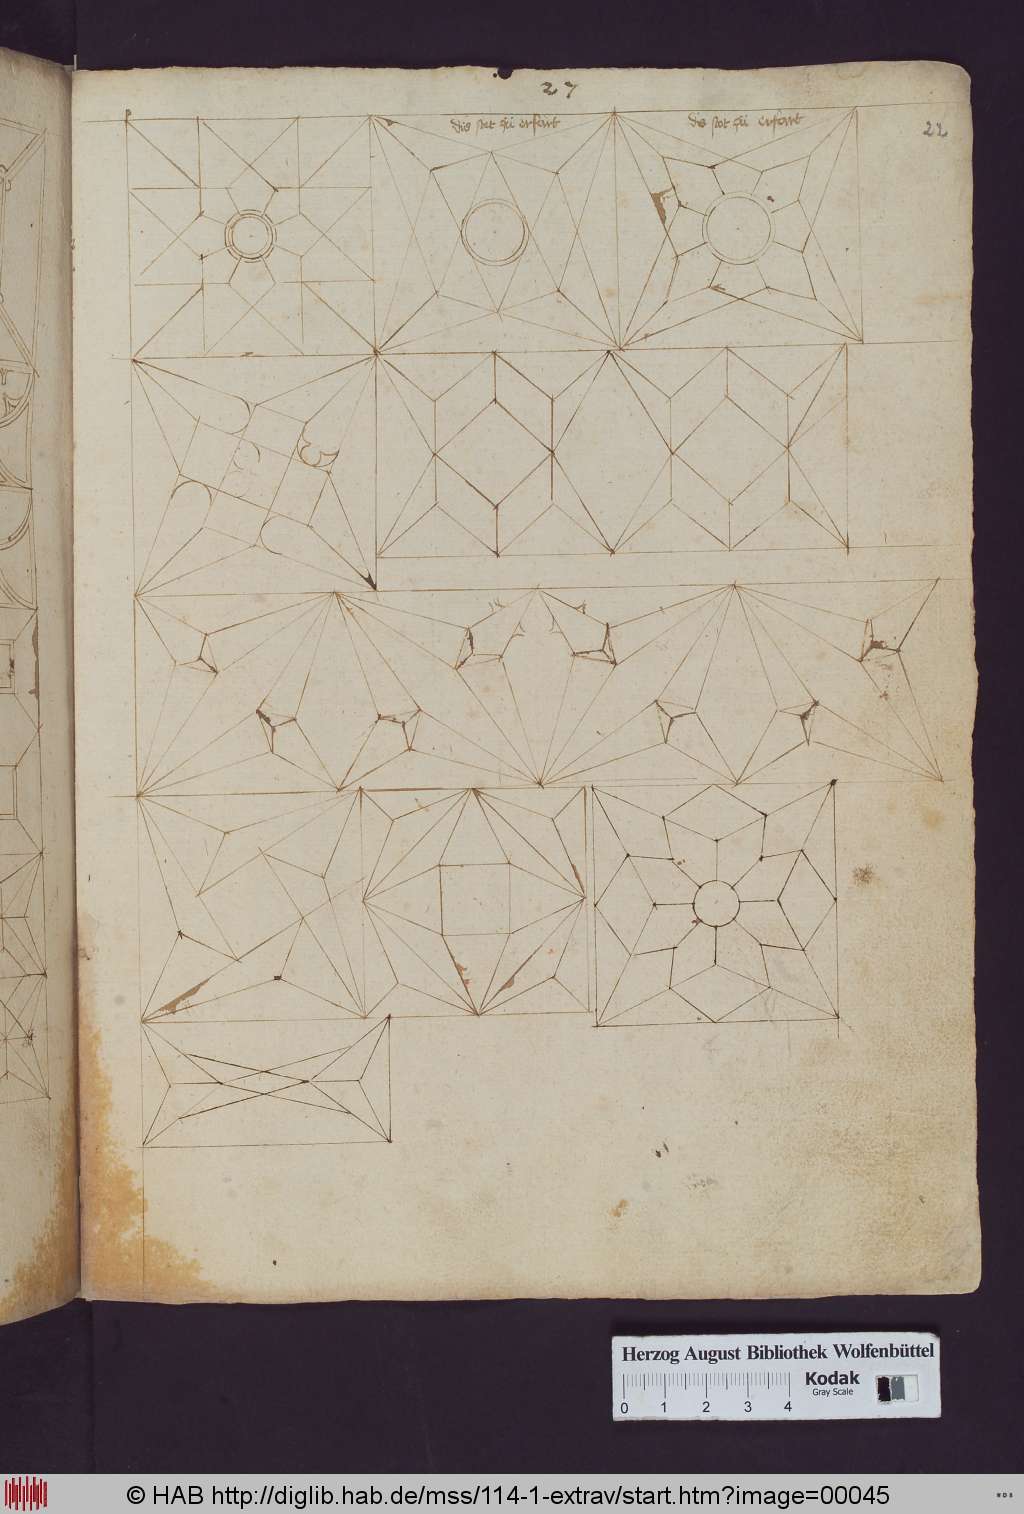 27
22
dis stet zu erfart
dis stet zu erfart
Herzog August Bibliothek Wolfenbüttel
0 1 2 3 4
Kodak
Gray Scale
© HAB http://diglib.hab.de/mss/114-1-extrav/start.htm?image=00045